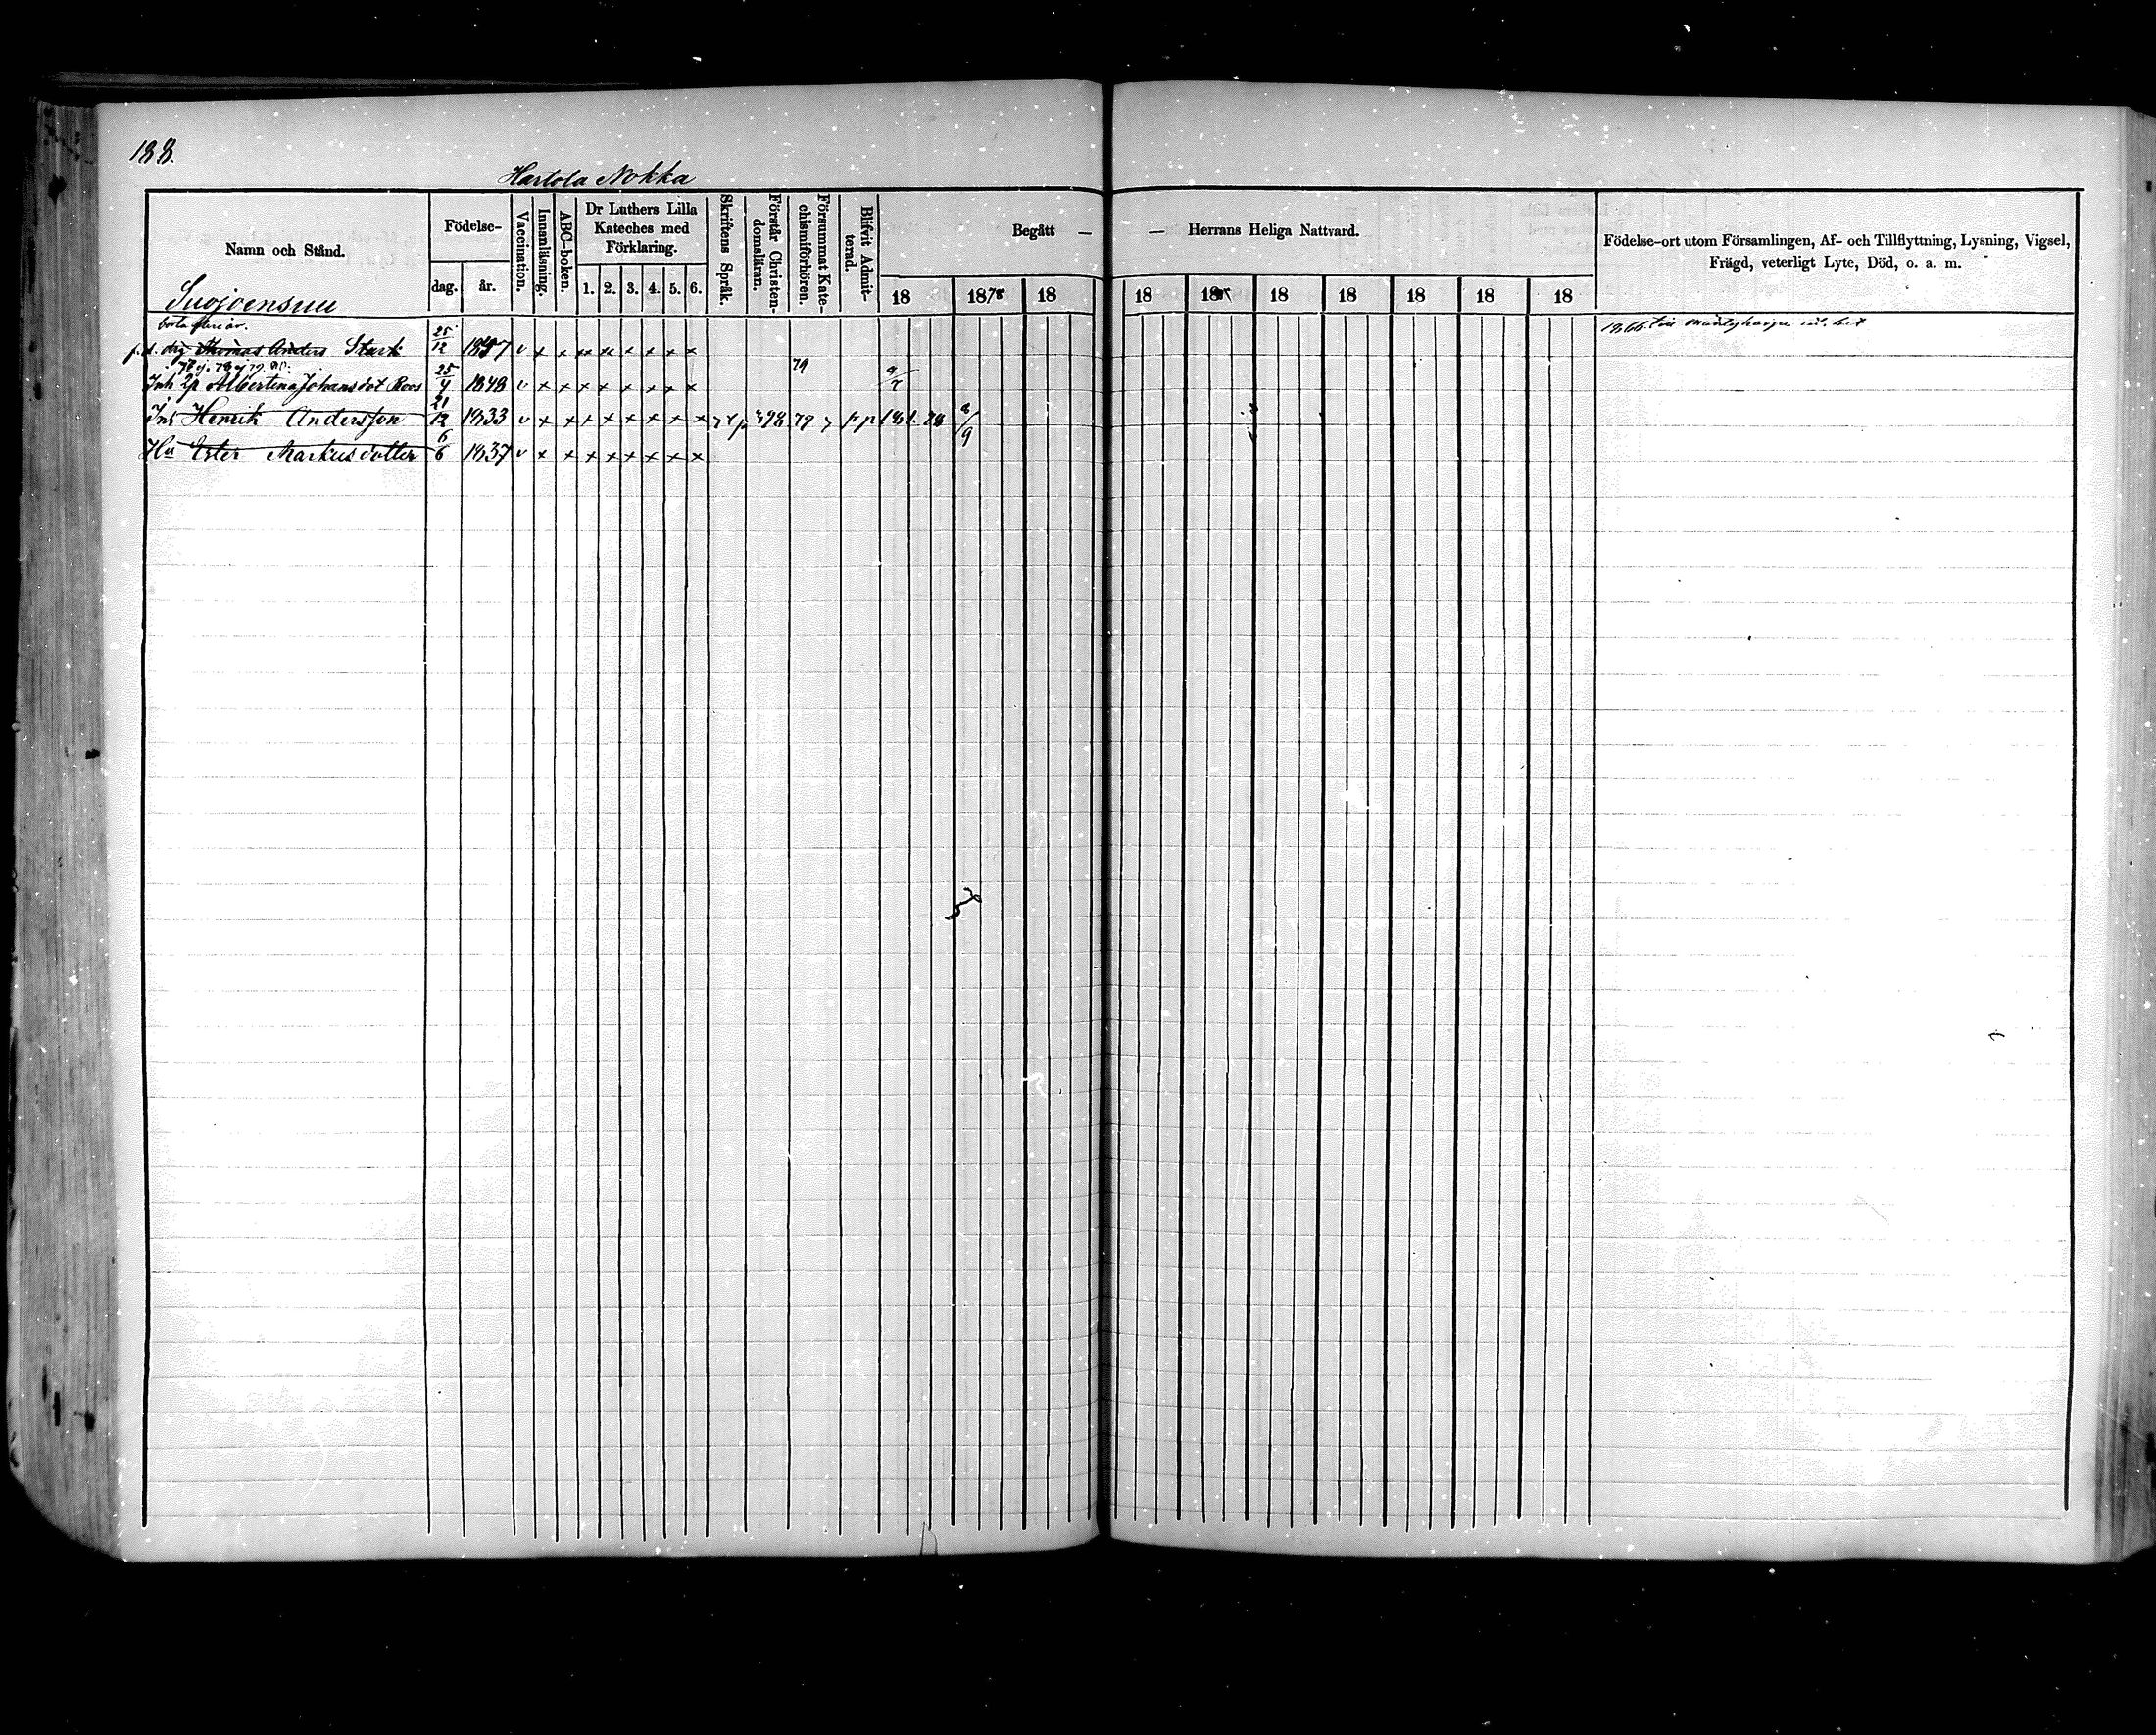 188.
Hartola Nokka
Namn och Stånd.
Födelse-
dag. år.
Vaccination.
Innanläsning.
ABC-boken.
Dr Luthers Lilla
Kateches med
Förklaring.
1. 2. 3. 4. 5. 6.
Skriftens Språk.
Förstår Christen-
domsläran.
Försummat Kate-
chismiförhören.
Blifvit Admit-
terad.
Begått —
— Herrans Heliga Nattvard.
18 1878 18 18 18 18 18 18 18 18
Födelse-ort utom Församlingen, Af- och Tillflyttning, Lysning, Vigsel,
Frägd, veterligt Lyte, Död, o. a. m.
Suojoensuu
borta flere år.
drg Thomas Anders Stark 25/12 1847 v x x x x x x x x
1866
77 j. 78 j 79.
Inh Albertina Johansdot Roos 25/4 1848 v x x x x x x x x 79
Inh Henrik Andersson 21/12 1833 v x x x x x x x x 79
Hu Ester Markusdotter 6/6 1837 v x x x x x x x x